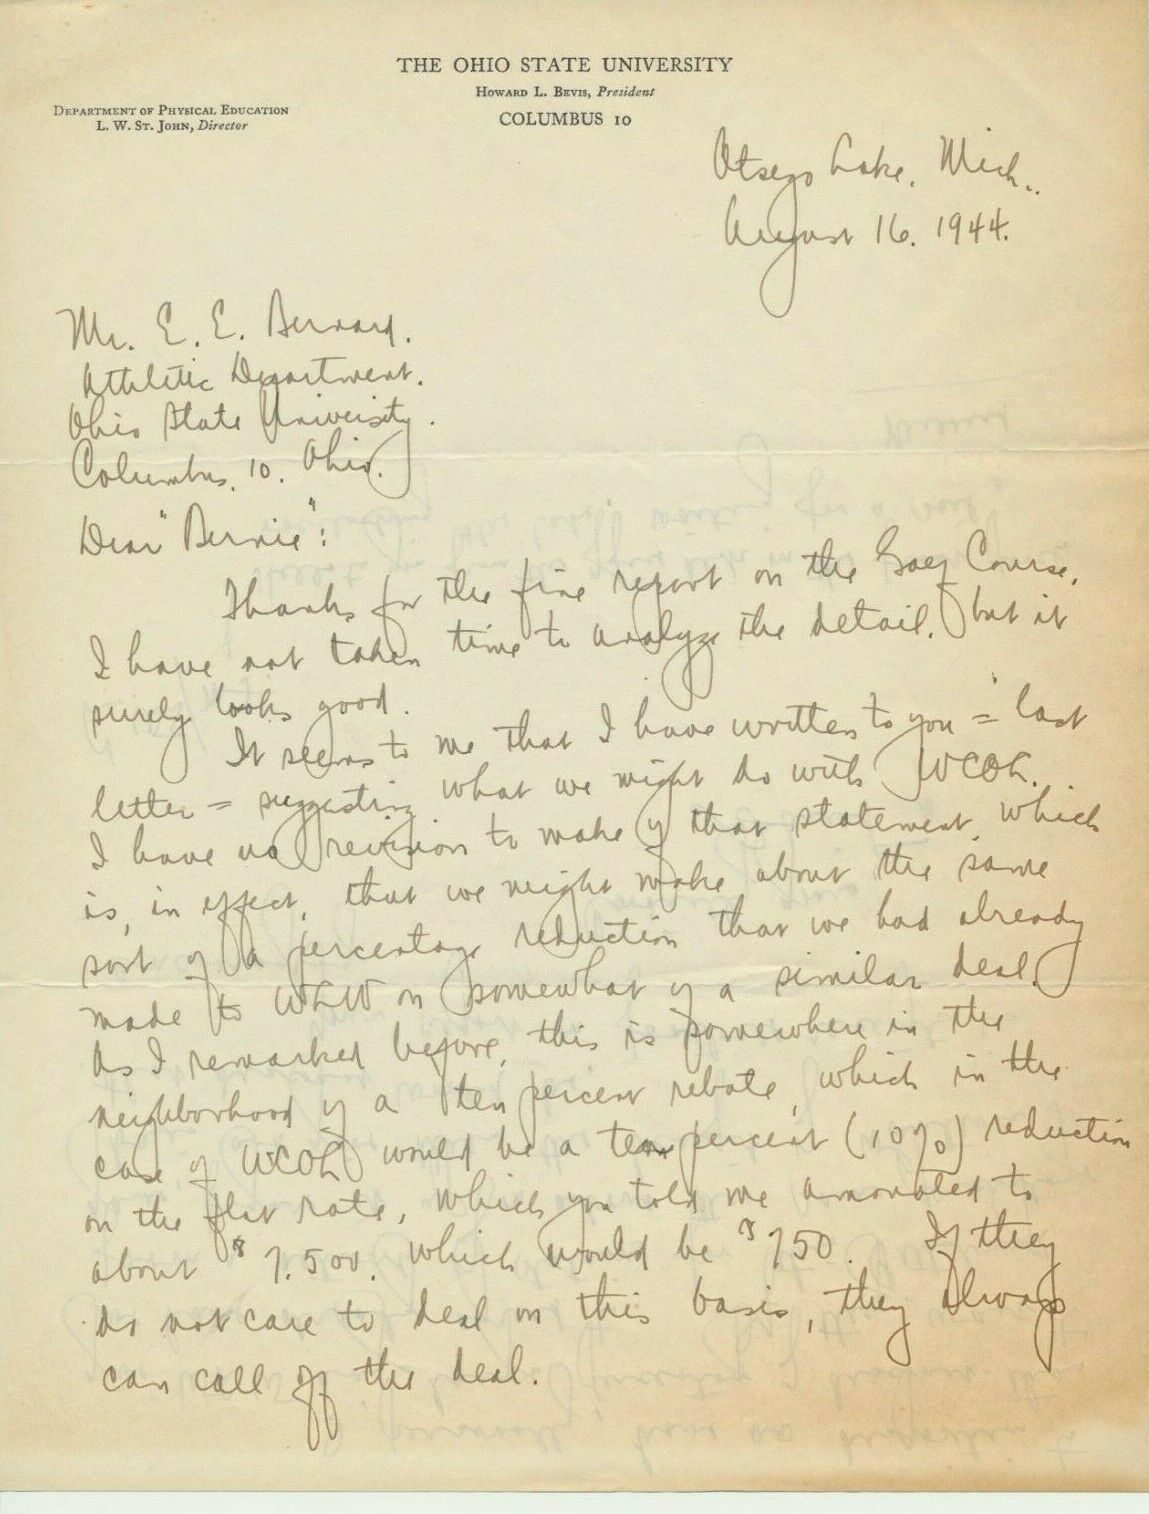 THE OHIO STATE UNIVERSITY
HOWARD L. BEVIS, President
COLUMBUS 10
DEPARTMENT OF PHYSICAL EDUCATION
L. W. ST. JOHN, Director
Otsego Lake, Mich..
August 16. 1944.
Mr. E. E. Bernard.
Athletic Department.
Ohio State University.
Columbus. 10. Ohio.
Dear "Bernie":
Thanks for the fine report on the Golf Course.
I have not taken time to analyze the detail, but it
surely looks good.
It seems to me that I have written to you = last
letter = suggesting what we might do with WCOL.
I have no revision to make of that statement, which
is, in effect, that we might make about the same
sort of a percentage reduction that we had already
made to WLW on somewhat of a similar deal.
As I remarked before, this is somewhere in the
neighborhood of a ten percent rebate, which in the
case of WCOL would be a ten percent (10%) reduction
on the flat rate, which you told me amounted to
about $7,500. which would be $750. If they
do not care to deal on this basis, they always
can call off the deal.